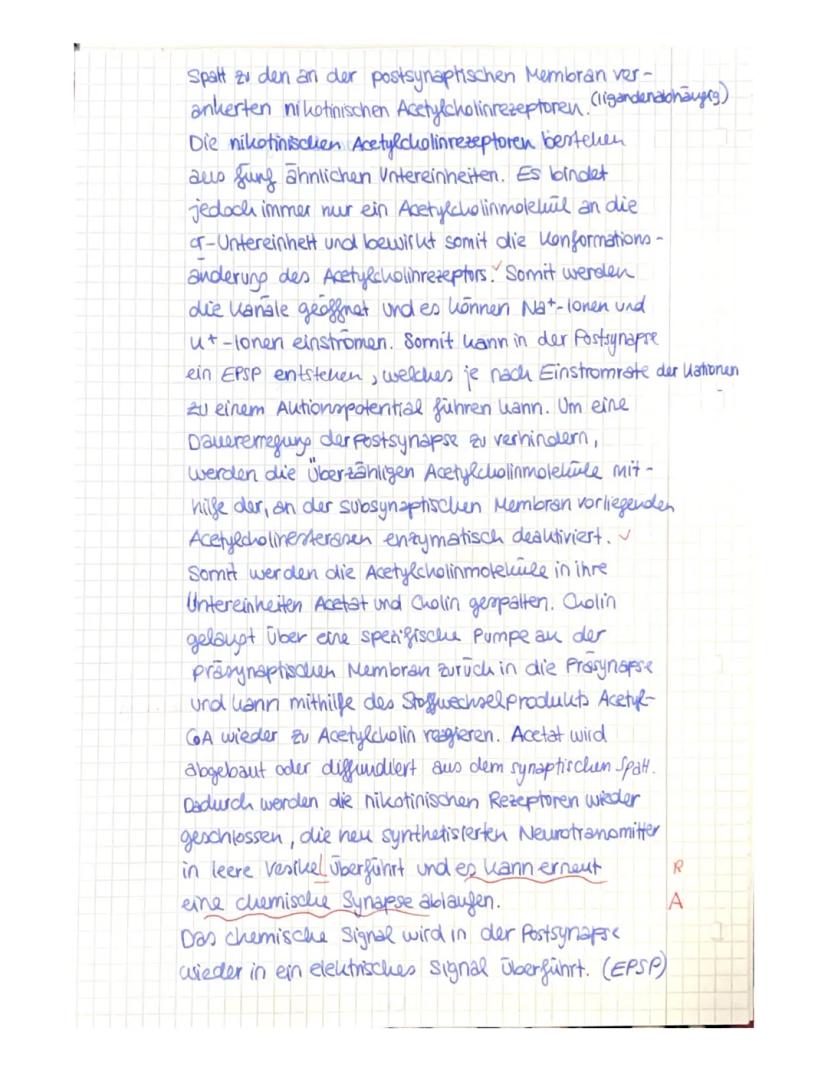 Spalt zu den an der postsynaptischen Membran ver-
ankerten nikotinischen Acetylcholinrezeptoren. (ligandenabhängig)
Die nikotinischen Acetylcholinrezeptoren bestehen
aus fünf ähnlichen Untereinheiten. Es bindet
jedoch immer nur ein Acetylcholinmolekül an die
α-Untereinheit und bewirkt somit die Konformations-
änderung des Acetylcholinrezeptors. Somit werden
die Kanäle geöffnet und es können Na+-Ionen und
K+-Ionen einströmen. Somit kann in der Postsynapse
ein EPSP entstehen, welches je nach Einstromrate der Kationen
zu einem Aktionspotential führen kann. Um eine
Dauererregung der Postsynapse zu verhindern,
werden die überzähligen Acetylcholinmoleküle mit-
hilfe der, an der subsynaptischen Membran vorliegenden
Acetylcholinesterasen enzymatisch deaktiviert. ✓
Somit werden die Acetylcholinmoleküle in ihre
Untereinheiten Acetat und Cholin gespalten. Cholin
gelangt über eine spezifische Pumpe an der
präsynaptischen Membran zurück in die Präsynapse
und kann mithilfe des Stoffwechselprodukts Acetyl-
CoA wieder zu Acetylcholin reagieren. Acetat wird
abgebaut oder diffundiert aus dem synaptischen Spalt.
Dadurch werden die nikotinischen Rezeptoren wieder
geschlossen, die neu synthetisierten Neurotransmitter
in leere Vesikel überführt und es kann erneut R
eine chemische Synapse ablaufen. A
Das chemische Signal wird in der Postsynapse
wieder in ein elektrisches Signal überführt. (EPSP)